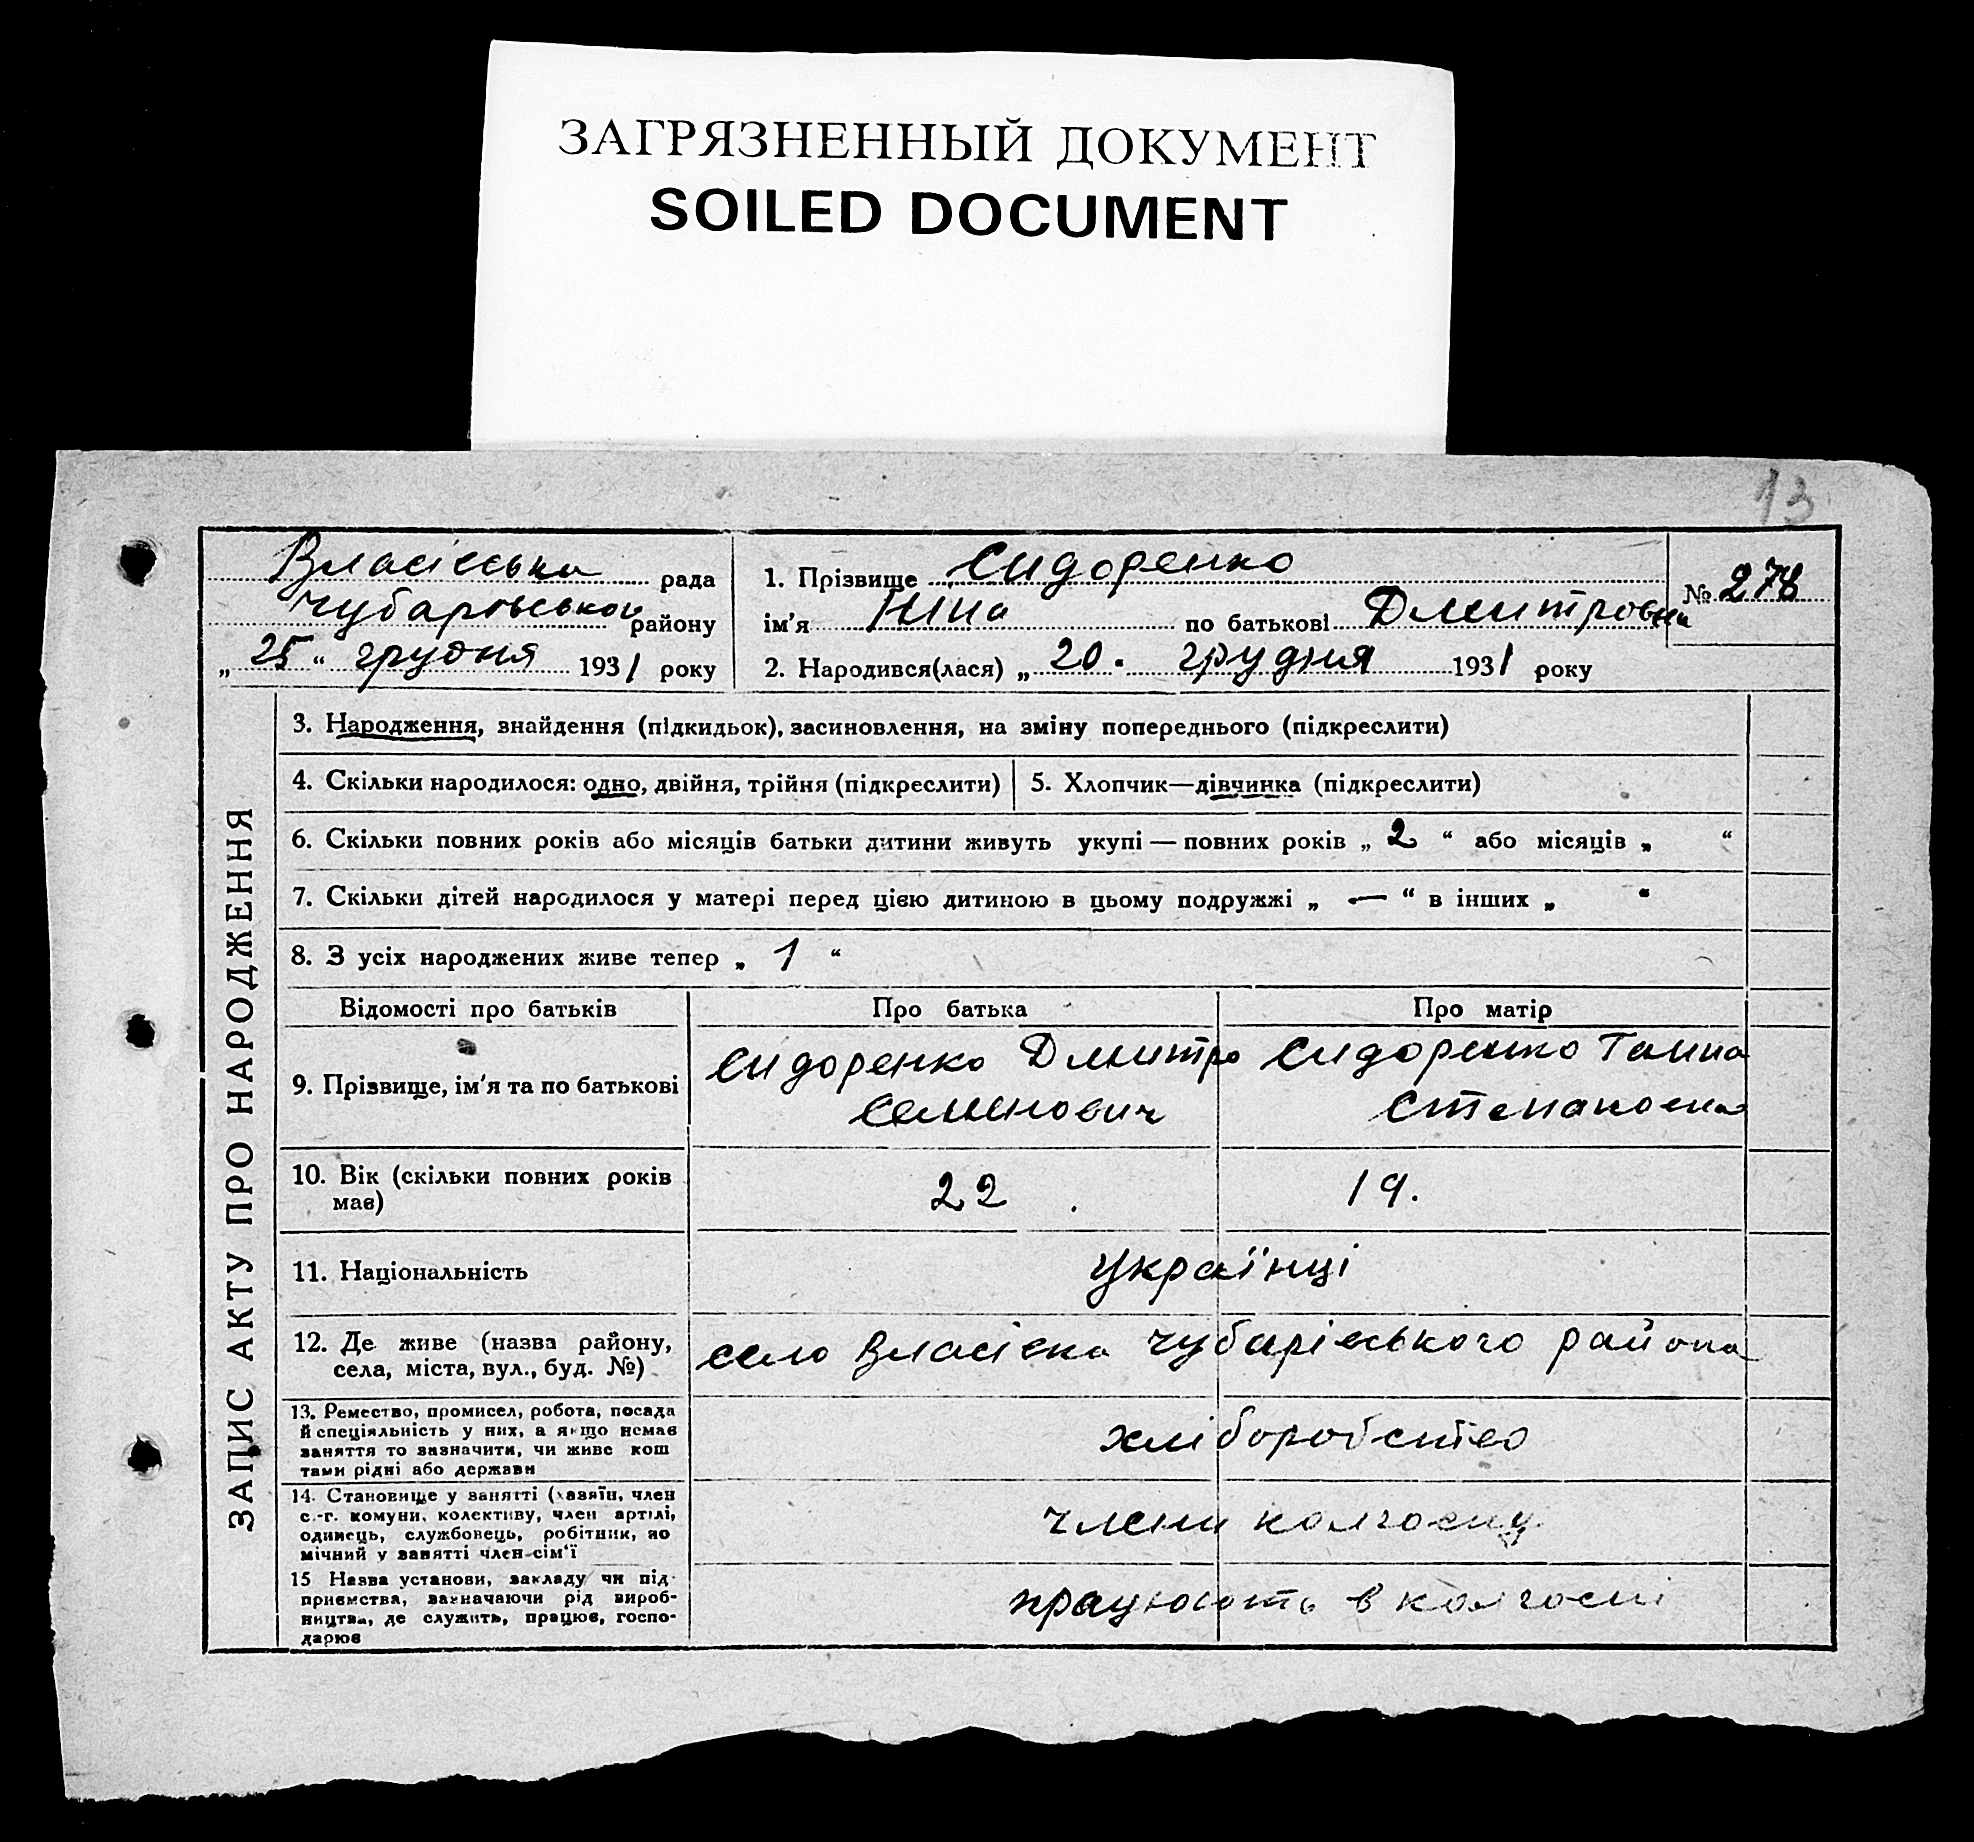 ЗАГРЯЗНЕННЫЙ ДОКУМЕНТ
SOILED DOCUMENT
13
Власівська рада
Чубарівського району
„ 25 “ грудня 1931 року
1. Прізвище Сидоренко
ім'я Ніна по батькові Дмитровна
№ 278
2. Народився(лася) „ 20 " грудня 1931 року
ЗАПИС АКТУ ПРО НАРОДЖЕННЯ
3. Народження, знайдення (підкидьок), засиновлення, на зміну попереднього (підкреслити)
4. Скільки народилося: одно, двійня, трійня (підкреслити)
5. Хлопчик—дівчинка (підкреслити)
6. Скільки повних років або місяців батьки дитини живуть укупі — повних років „ 2 “ або місяців „ “
7. Скільки дітей народилося у матері перед цією дитиною в цьому подружжі „ — “ в інших „ “
8. З усіх народжених живе тепер „ 1 “
Відомості про батьків
Про батька
Про матір
9. Прізвище, ім'я та по батькові
Сидоренко Дмитро
Семенович
Сидоренко Ганна
Степановна
10. Вік (скільки повних років
має)
22
19.
11. Національність
українці
12. Де живе (назва району,
села, міста, вул., буд. №)
село Власівка Чубарівського района
13. Ремество, промисел, робота, посада
й спеціяльність у них, а якщо немає
заняття то зазначити, чи живе кош
тами рідні або держави
хліборобство
14. Становище у занятті (хазяїн, член
с.-г. комуни, колективу, член артілі,
одинець, службовець, робітник, по
мічний у занятті член-сім'ї
члени колгоспу
15 Назва установи, закладу чи під-
приємства, зазначаючи рід вироб-
ництва, де служить, працює, госпо-
дарює
працюють в колгоспі